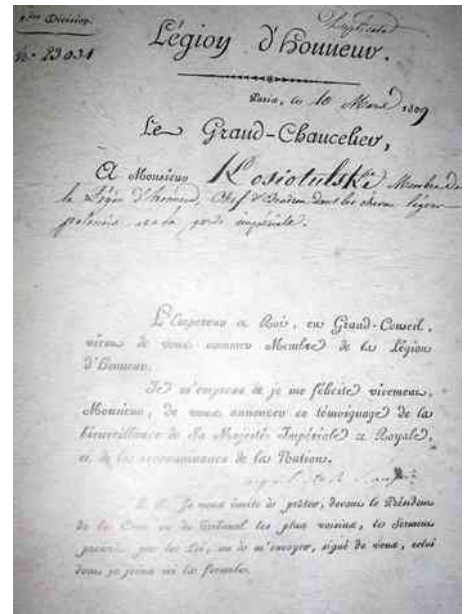 1ère Division.
Duplicata
N° 23031
Légion d'honneur.
Paris, le 10 Mars 1809
Le Grand-Chancelier,
A Monsieur Kosiotulski Membre de
la Légion d'honneur, Chef d'Escadron dans les chevau légers
polonais de la garde impériale.
L'Empereur et Roi, en Grand-Conseil,
vient de vous nommer Membre de la Légion
d'Honneur.
Je m'empresse et je me félicite vivement,
Monsieur, de vous annoncer ce témoignage de la
bienveillance de Sa Majesté Impériale et Royale,
et de la reconnaissance de la Nation.
Je vous invite à prêter, devant le Président
de la Cour ou du Tribunal les plus voisins, le Serment
prescrit par la Loi, et à m'envoyer, signé de vous, celui
dont je joins ici la formule.